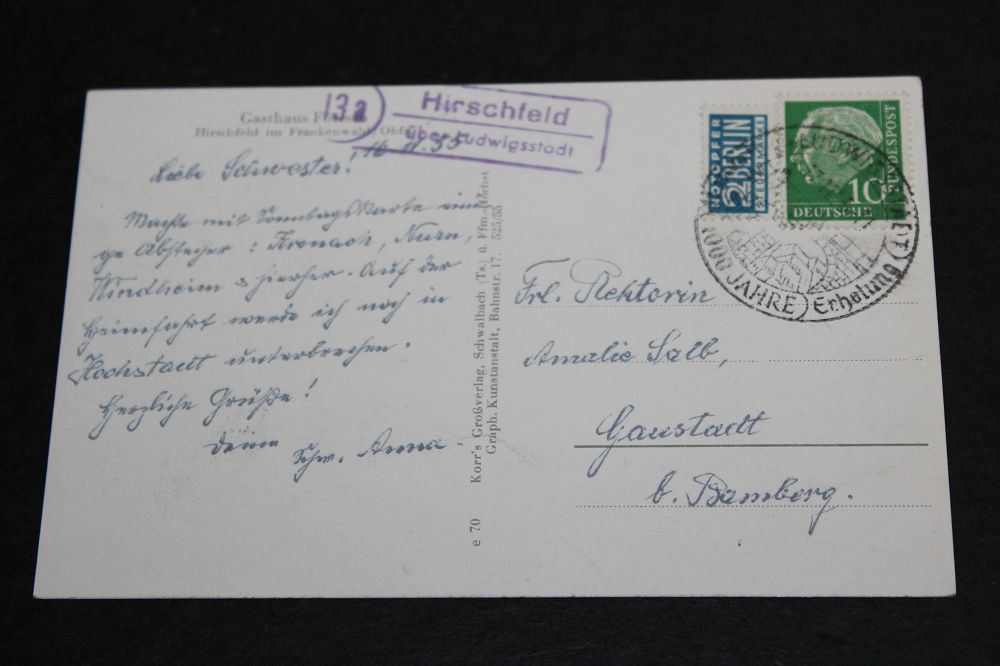 13a
Hirschfeld
über Ludwigsstadt
Gasthaus
Hirschfeld im Frankenwald, Obfr.
16. 11. 55
Liebe Schwester!
Mache mit Sonntagskarte eini
ge Abstecher: Kronach, Nurn,
Windheim & hierher. Auf der
Heimfahrt werde ich noch in
Hochstadt unterbrechen.
Herzliche Grüße!
Deine
Schw. Anna
e 70 Korr's Großverlag, Schwalbach (Ts.) a. Ffm.-Höchst
Graph. Kunstanstalt, Bahnstr. 17. 525/55
NOTOPFER
2 BERLIN
STEUERMARKE
10
DEUTSCHE
BUNDESPOST
1000 JAHRE
Erholung
Frl. Rektorin
Amalie Salb,
Gaustadt
b. Bamberg.